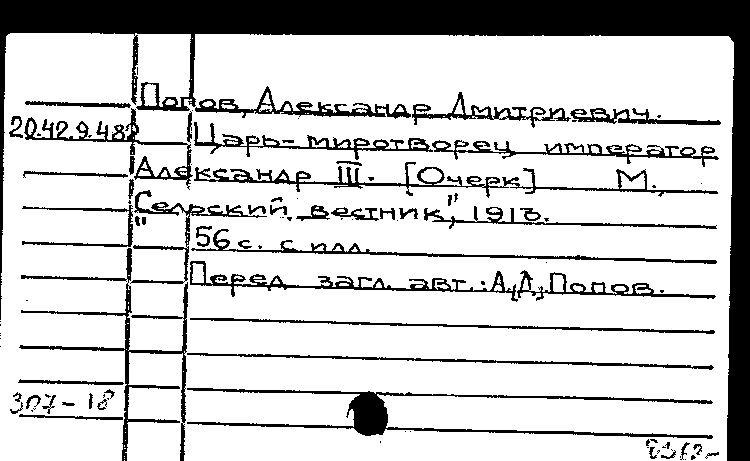 Попов, Александр Дмитриевич.
20.42.9.482 Царь-миротворец император
Александр III. [Очерк] М.,
"Сельский вестник", 1913.
56 с. с илл.
Перед загл. авт.: А.Д. Попов.
307-18